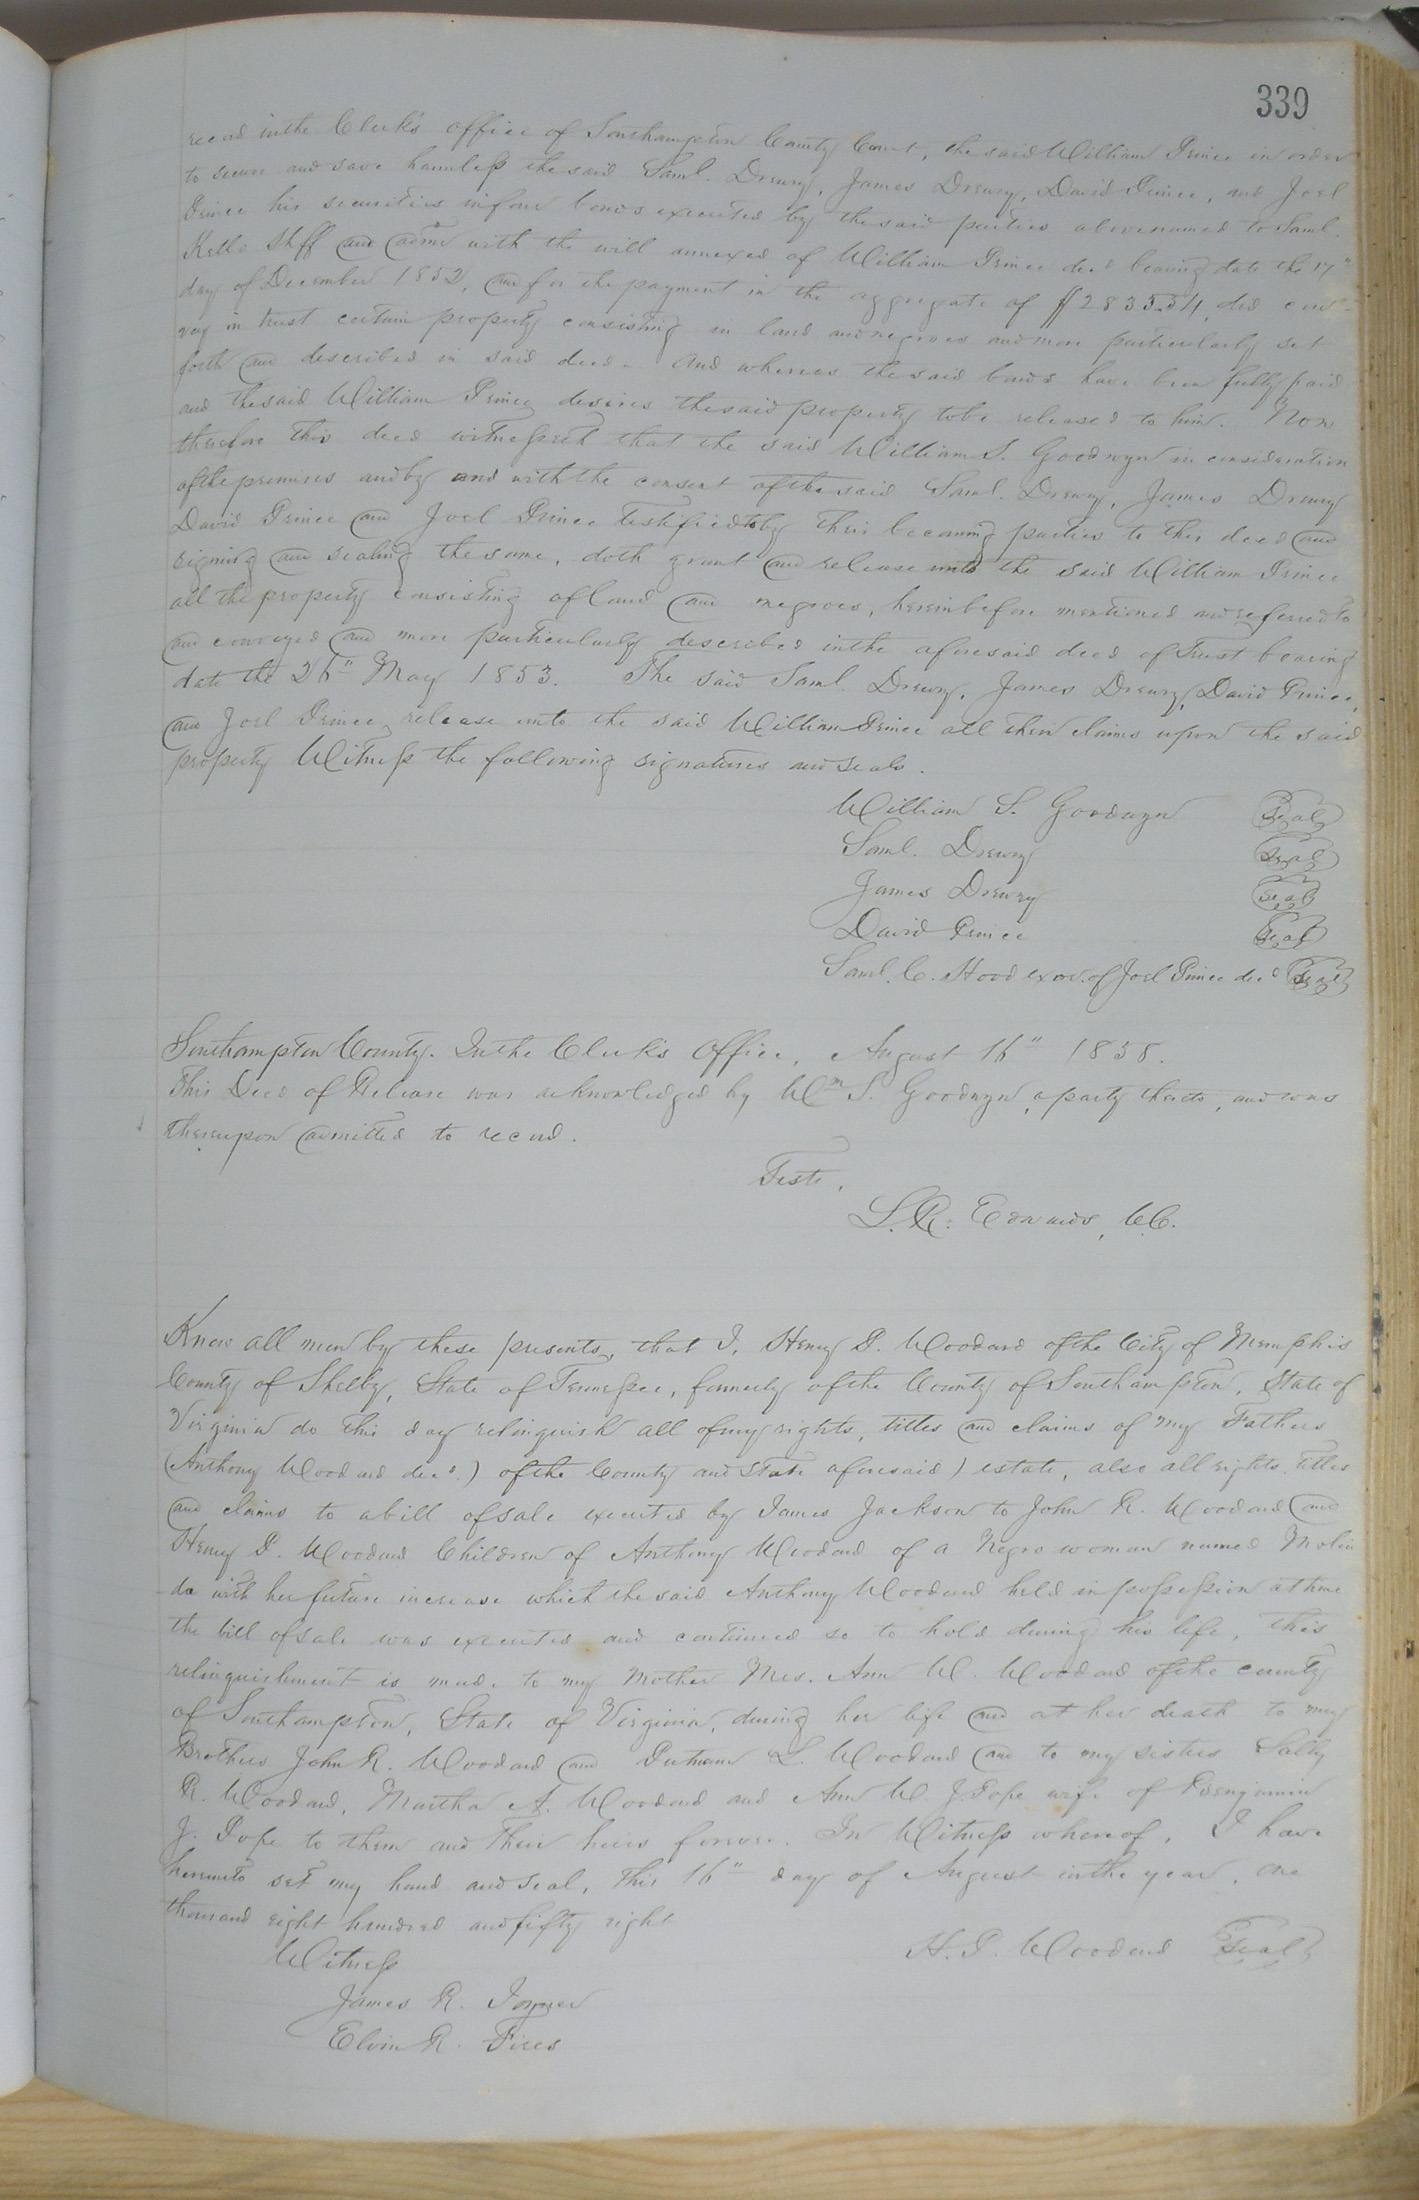 339
record in the Clerk's office of Southampton County Court, the said William Prince in order
to secure and save harmless the said Saml. Drewry, James Drewry, David Prince, and Joel
Prince his securities in four bonds executed by the said parties above named to Saml.
Kello Shff and admr with the will annexed of William Prince decd bearing date the 17"
day of December 1852, and for the payment in the aggregate of $2835.54, did con-
vey in trust certain property consisting in land and negroes and more particularly set
forth and described in said deed - And whereas the said bonds have been fully paid
and the said William Prince desires the said property to be released to him. Now
therefore this deed witnesseth that the said William S. Goodwyn in consideration
of the premises and by and with the consent of the said Saml. Drewry, James Drewry
David Prince and Joel Prince testified to by their becoming parties to this deed and
signing and sealing the same, doth grant and release unto the said William Prince
all the property consisting of land and negroes, hereinbefore mentioned and referred to
and conveyed and more particularly described in the aforesaid deed of Trust bearing
date the 26" May 1853. The said Saml. Drewry, James Drewry, David Prince,
and Joel Prince release unto the said William Prince all their claims upon the said
property Witness the following signatures and seals.
William S. Goodwyn Seal
Saml. Drewry Seal
James Drewry Seal
David Prince Seal
Saml. C. Hood exor. of Joel Prince decd Seal
Southampton County. In the Clerk's Office, August 16" 1858.
This Deed of Release was acknowledged by Wm S. Goodwyn, a party thereto, and was
thereupon admitted to record.
Teste,
L. R. Edwards, C.C.
Know all men by these presents, that I, Henry P. Woodard of the City of Memphis
County of Shelby, State of Tennessee, formerly of the County of Southampton, State of
Virginia do this day relinquish all of my rights, titles and claims of my Fathers
(Anthony Woodard decd.) of the County and State aforesaid) estate, also all rights titles
and claims to a bill of sale executed by James Jackson to John R. Woodard and
Henry P. Woodard Children of Anthony Woodard of a Negro woman named Molin
da with her future increase which the said Anthony Woodard held in possession at time
the bill of sale was executed and continued so to hold during his life, this
relinquishment is made to my Mother Mrs. Ann W. Woodard of the county
of Southampton, State of Virginia, during her life and at her death to my
Brothers John R. Woodard and Putnam L. Woodard and to my sisters Sally
R. Woodard, Martha A. Woodard and Ann W. J. Pope wife of Benjamin
J. Pope to them and their heirs forever. In Witness whereof, I have
hereunto set my hand and seal, this 16" day of August in the year, one
thousand eight hundred and fifty eight
H. P. Woodard Seal
Witness
James R. Joyner
Elvin R.